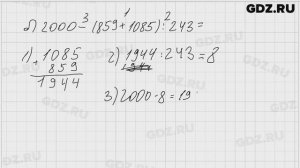 GDZ.RU
б) 2000 - (859 + 1085) : 243 =
3 1 2
1) 1085
+ 859
1944
2) 1944 : 243 = 8
1944
3) 2000 - 8 = 19